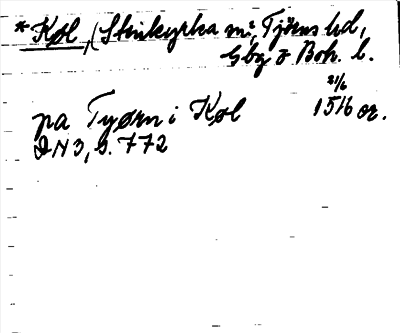 * Køl, (Stenkyrka sn, Tjörns hd,
Gbg o Boh. l.
21/6
på Tyørn i Køl 1516 or.
DN 3, s. 772